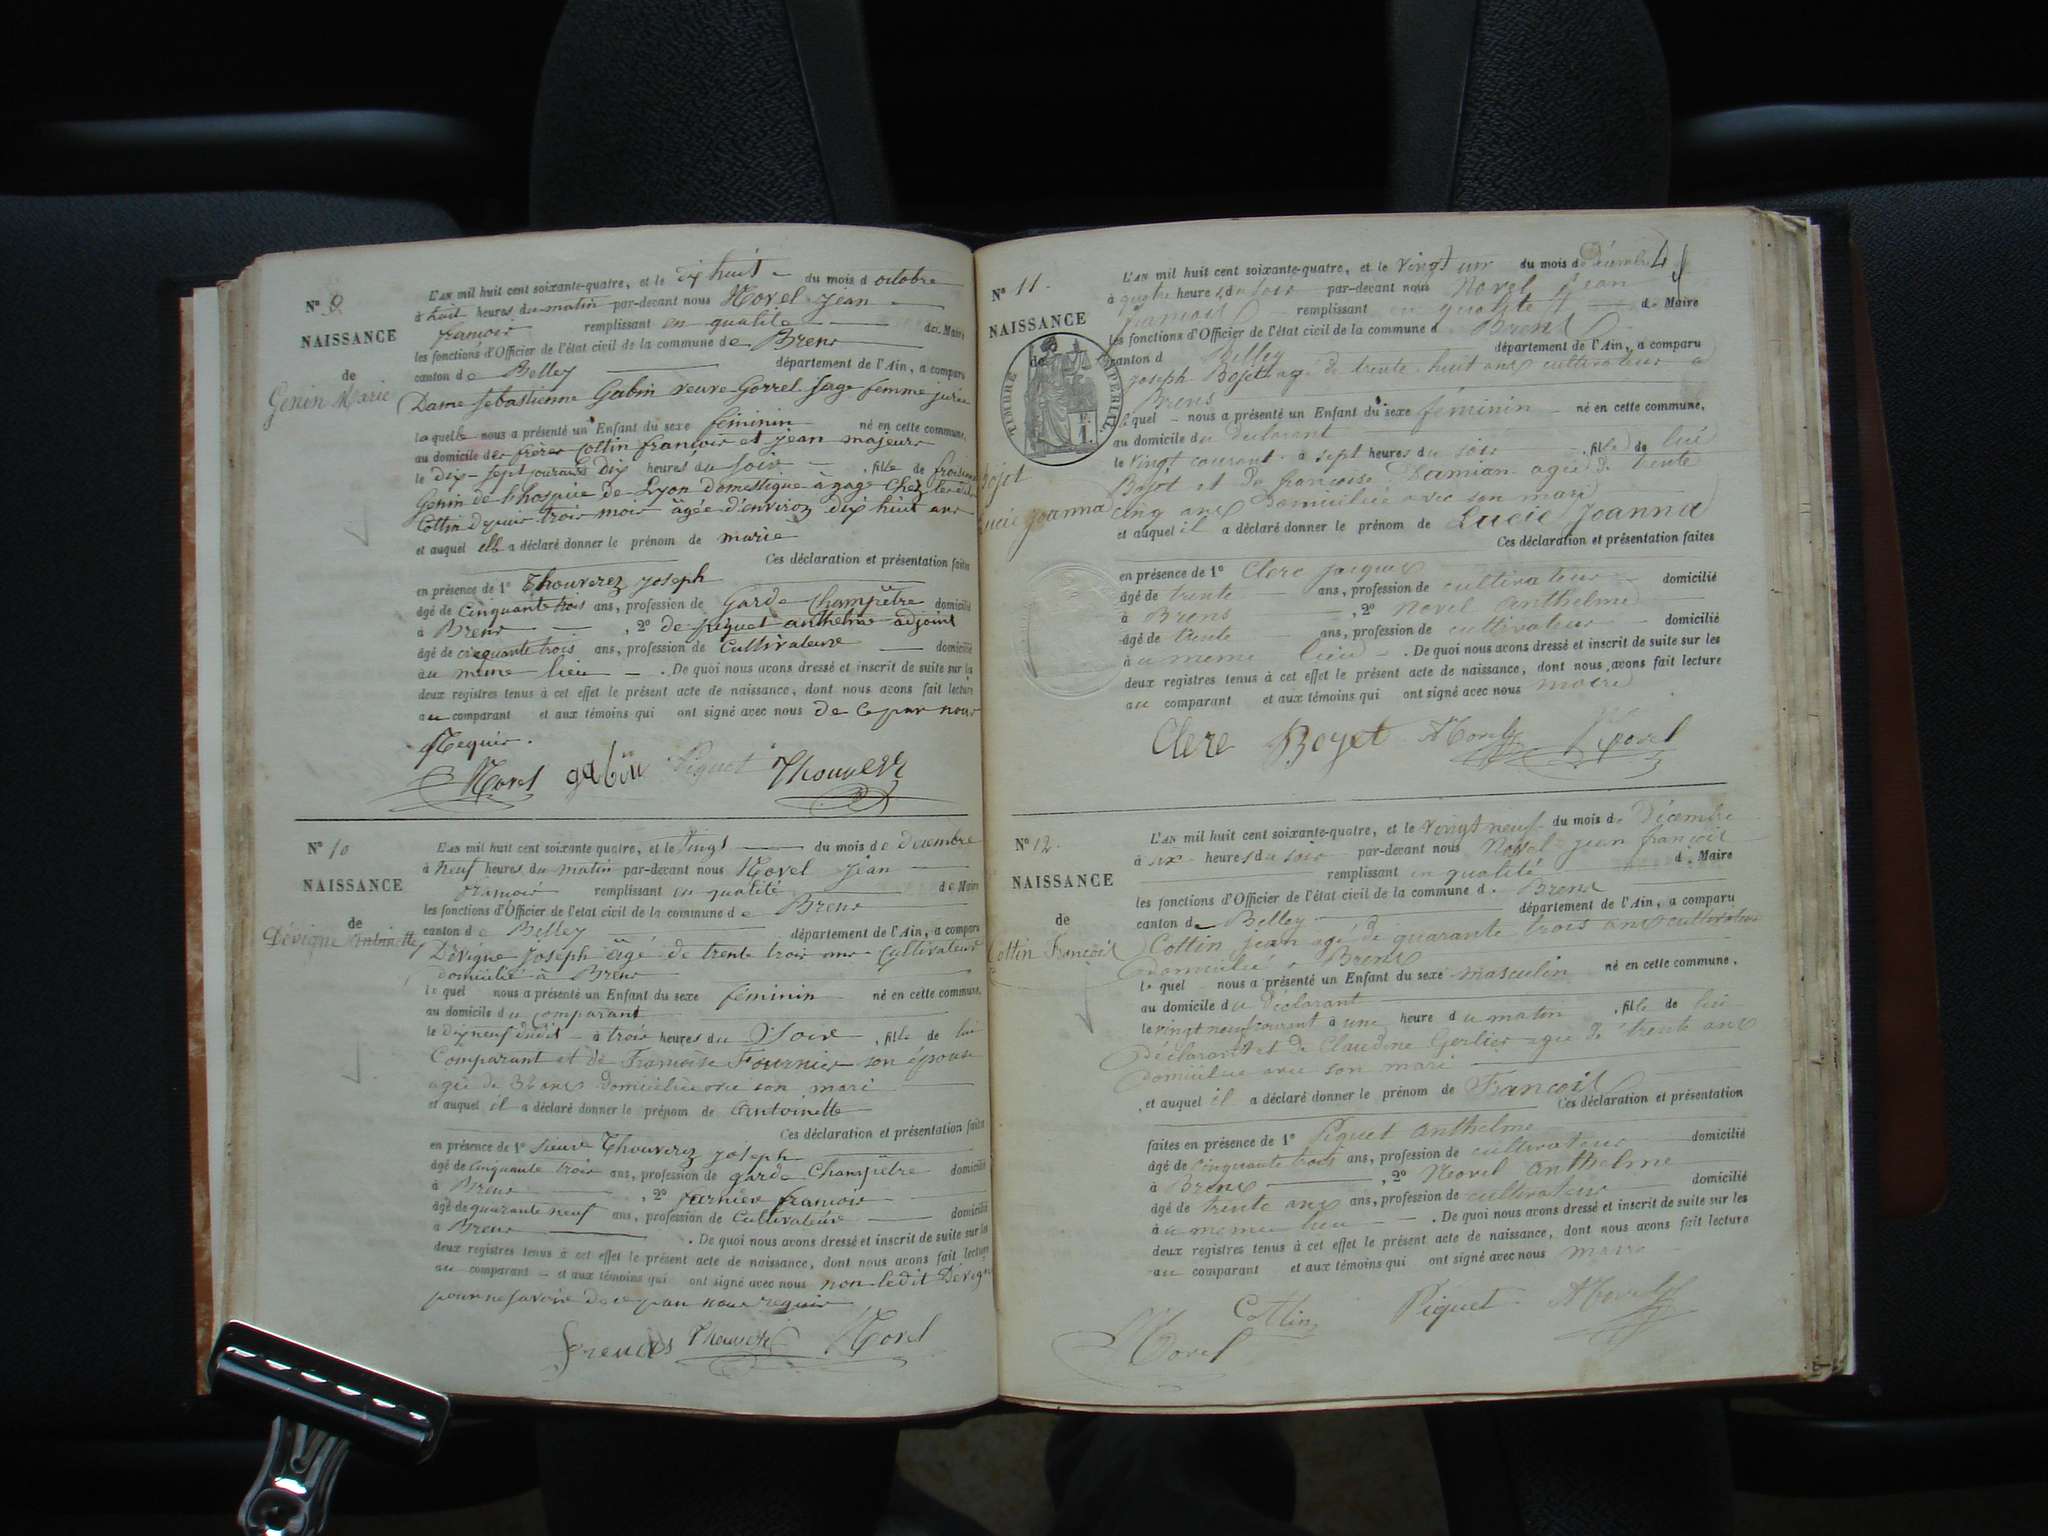 N° 9
NAISSANCE
de
Genin Marie
L'AN mil huit cent soixante-quatre, et le dix huit du mois d octobre
à huit heures du matin par-devant nous Morel Jean
françois remplissant en qualité de Maire
les fonctions d'Officier de l'état civil de la commune de Brens
canton de Belley département de l'Ain, a comparu
Dame Sebastienne Gabin veuve Gorrel Sage femme jurée
laquelle nous a présenté un Enfant du sexe féminin né en cette commune,
au domicile des frères Cottin françois et jean majeurs
le dix-sept courant à dix heures du soir , fille de
Genin de l'hospice de Lyon domestique à gage chez
Cottin depuis trois mois âgée d'environ dix huit ans
et auquel elle a déclaré donner le prénom de marie
Ces déclaration et présentation faites
en présence de 1° Thouverez joseph
âgé de cinquante trois ans, profession de Garde Champêtre domicilié
à Brens , 2° de piquet anthelme adjoint
âgé de cinquante trois ans, profession de Cultivateur domicilié
au même lieu . De quoi nous avons dressé et inscrit de suite sur les
deux registres tenus à cet effet le présent acte de naissance, dont nous avons fait lecture
au comparant et aux témoins qui ont signé avec nous de ce par nous
Requis.
Morel gabin Piquet Thouverez
N° 10
NAISSANCE
de
Dévigne Antoinette
L'AN mil huit cent soixante quatre, et le vingt du mois de decembre
à neuf heures du matin par-devant nous Morel Jean
françois remplissant en qualité de Maire
les fonctions d'Officier de l'état civil de la commune de Brens
canton de Belley département de l'Ain, a comparu
Dévigne Joseph âgé de trente trois ans Cultivateur
domicilié à Brens
lequel nous a présenté un Enfant du sexe féminin né en cette commune,
au domicile du comparant
le dixneuf dudit à trois heures du Soir , fille de lui
Comparant et de Françoise Fournier son épouse
agée de ans domiciliée avec son mari
et auquel il a déclaré donner le prénom de Antoinette
Ces déclaration et présentation faites
en présence de 1° sieur Thouverez joseph
âgé de cinquante trois ans, profession de garde Champêtre domicilié
à Brens , 2° françois
âgé de quarante neuf ans, profession de Cultivateur domicilié
à Brens . De quoi nous avons dressé et inscrit de suite sur les
deux registres tenus à cet effet le présent acte de naissance, dont nous avons fait lecture
au comparant et aux témoins qui ont signé avec nous non ledit Dévigne
pour ne savoir de ce par nous requis
Thouverez Morel
N° 11.
NAISSANCE
de
TIMBRE IMPERIAL
1 F.
Bojot
Lucie Joanna
L'AN mil huit cent soixante-quatre, et le vingt un du mois de décembre
à quatre heures du soir par-devant nous Morel Jean
françois remplissant en qualité de Maire
les fonctions d'Officier de l'état civil de la commune de Brens
canton d Belley département de l'Ain, a comparu
joseph Bojot agé de trente huit ans cultivateur a
Brens
lequel nous a présenté un Enfant du sexe féminin né en cette commune,
au domicile du declarant
le vingt courant à sept heures du soir , fille de lui
Bojot et de françoise Damian agée de trente
cinq ans domiciliée avec son mari
et auquel il a déclaré donner le prénom de Lucie Joanna
Ces déclaration et présentation faites
en présence de 1° Clerc jacques
âgé de trente ans, profession de cultivateur domicilié
à Brens , 2° Morel Anthelme
âgé de trente ans, profession de cultivateur domicilié
à u meme lieu . De quoi nous avons dressé et inscrit de suite sur les
deux registres tenus à cet effet le présent acte de naissance, dont nous avons fait lecture
au comparant et aux témoins qui ont signé avec nous maire
Clerc Bojet AMorel Morel
N° 12.
NAISSANCE
de
Cottin François
L'AN mil huit cent soixante-quatre, et le vingt neuf du mois de Décembre
à six heures du soir par-devant nous Morel jean françois
remplissant en qualité d. Maire
les fonctions d'Officier de l'état civil de la commune d. Brens
canton de Belley département de l'Ain, a comparu
Cottin jean agé de quarante trois ans cultivateur
domicilié a Brens
lequel nous a présenté un Enfant du sexe masculin né en cette commune,
au domicile du Déclarant
le vingt neuf courant à une heure du matin , fils de lui
Déclarant et de Claudine Gerlier agée de trente ans
domiciliée avec son mari
et auquel il a déclaré donner le prénom de François
Ces déclaration et présentation
faites en présence de 1° Piquet Anthelme
âgé de cinquante trois ans, profession de cultivateur domicilié
à Brens , 2° Morel Anthelme
âgé de trente ans ans, profession de cultivateur domicilié
à u meme lieu . De quoi nous avons dressé et inscrit de suite sur les
deux registres tenus à cet effet le présent acte de naissance, dont nous avons fait lecture
au comparant et aux témoins qui ont signé avec nous maire
Morel Cottin Piquet AMorel